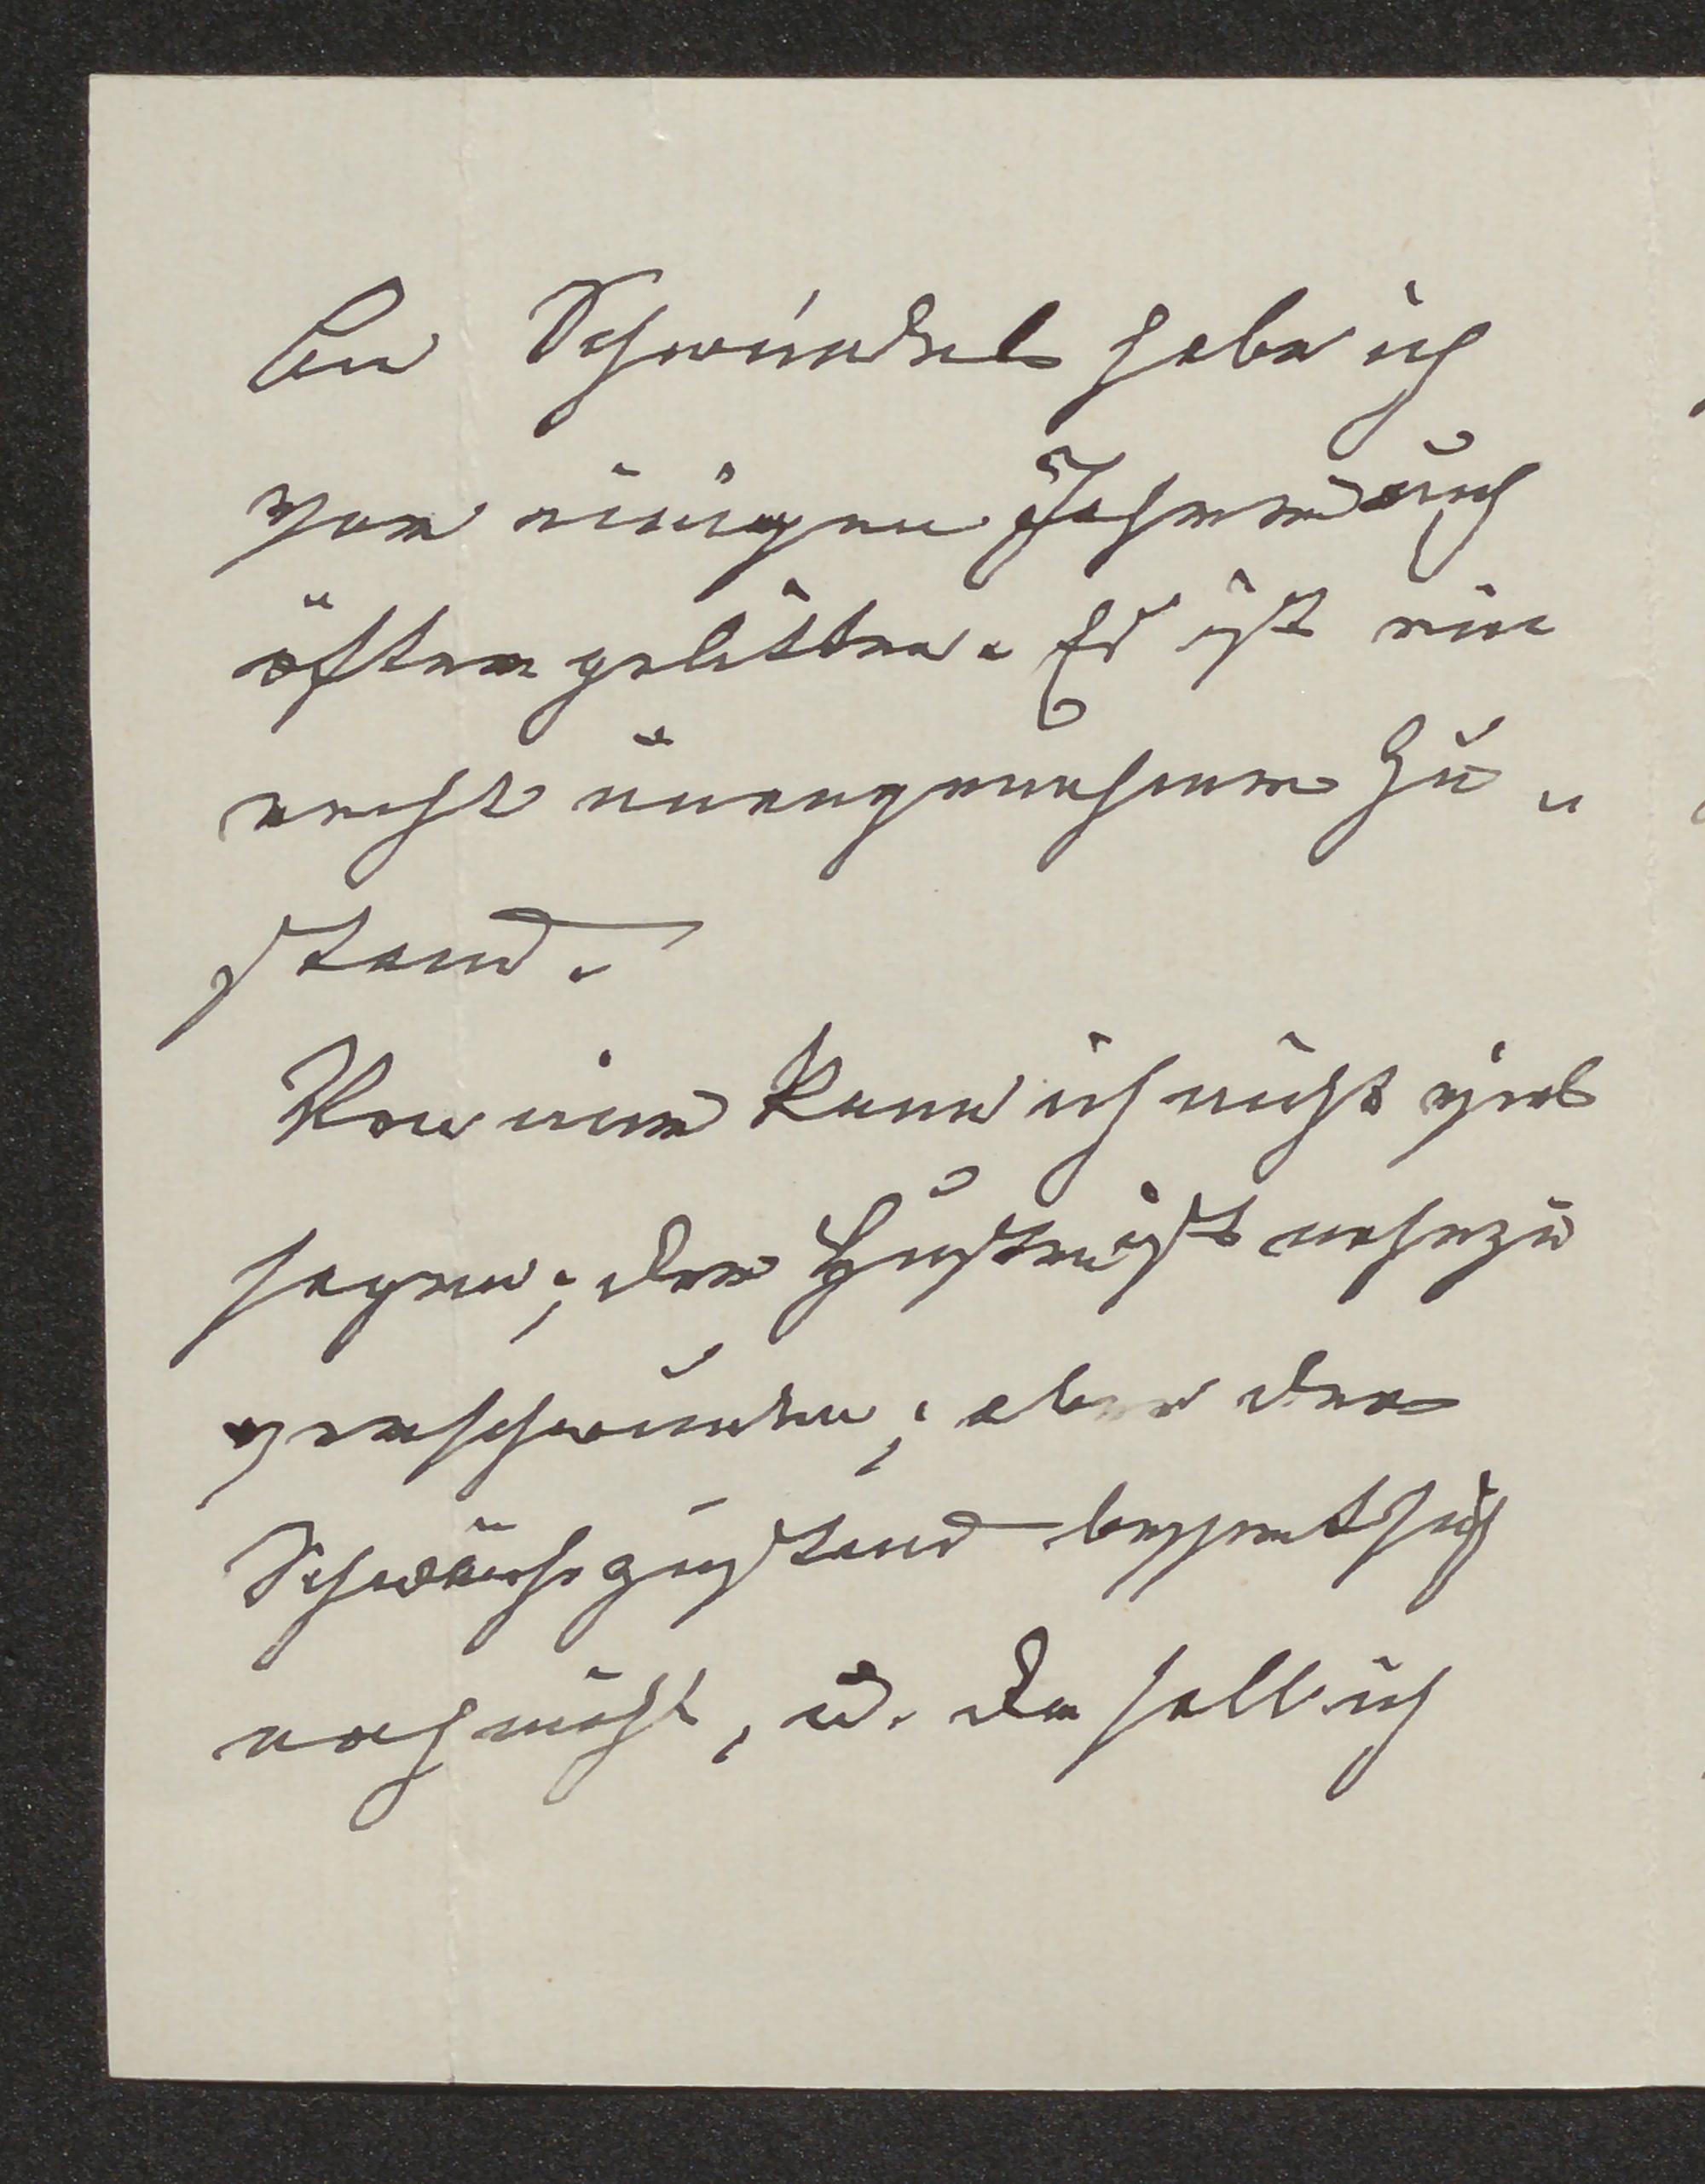 An Schwindel habe ich
vor einigen Jahren auch
öfter gelitten. Es ist ein
recht unangenehmer Zu-
stand.
Von mir kann ich nicht viel
sagen; der Husten ist nahezu
verschwunden; aber der
Schwächezustand bessert sich
noch nicht, u. da soll ich